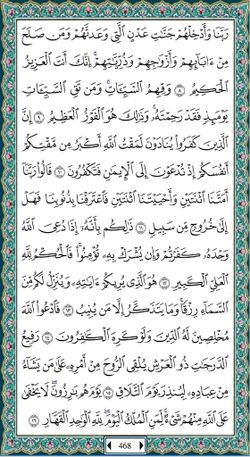 رَبَّنَا وَأَدْخِلْهُمْ جَنَّٰتِ عَدْنٍ ٱلَّتِى وَعَدتَّهُمْ وَمَن صَلَحَ
مِنْ ءَابَآئِهِمْ وَأَزْوَٰجِهِمْ وَذُرِّيَّٰتِهِمْ ۚ إِنَّكَ أَنتَ ٱلْعَزِيزُ
ٱلْحَكِيمُ ٨ وَقِهِمُ ٱلسَّيِّـَٔاتِ ۚ وَمَن تَقِ ٱلسَّيِّـَٔاتِ
يَوْمَئِذٍ فَقَدْ رَحِمْتَهُۥ ۚ وَذَٰلِكَ هُوَ ٱلْفَوْزُ ٱلْعَظِيمُ ٩ إِنَّ
ٱلَّذِينَ كَفَرُوا۟ يُنَادَوْنَ لَمَقْتُ ٱللَّهِ أَكْبَرُ مِن مَّقْتِكُمْ
أَنفُسَكُمْ إِذْ تُدْعَوْنَ إِلَى ٱلْإِيمَٰنِ فَتَكْفُرُونَ ١٠ قَالُوا۟ رَبَّنَآ
أَمَتَّنَا ٱثْنَتَيْنِ وَأَحْيَيْتَنَا ٱثْنَتَيْنِ فَٱعْتَرَفْنَا بِذُنُوبِنَا فَهَلْ
إِلَىٰ خُرُوجٍ مِّن سَبِيلٍ ١١ ذَٰلِكُم بِأَنَّهُۥٓ إِذَا دُعِىَ ٱللَّهُ
وَحْدَهُۥ كَفَرْتُمْ ۖ وَإِن يُشْرَكْ بِهِۦ تُؤْمِنُوا۟ ۚ فَٱلْحُكْمُ لِلَّهِ
ٱلْعَلِىِّ ٱلْكَبِيرِ ١٢ هُوَ ٱلَّذِى يُرِيكُمْ ءَايَٰتِهِۦ وَيُنَزِّلُ لَكُم مِّنَ
ٱلسَّمَآءِ رِزْقًا ۚ وَمَا يَتَذَكَّرُ إِلَّا مَن يُنِيبُ ١٣ فَٱدْعُوا۟ ٱللَّهَ
مُخْلِصِينَ لَهُ ٱلدِّينَ وَلَوْ كَرِهَ ٱلْكَٰفِرُونَ ١٤ رَفِيعُ
ٱلدَّرَجَٰتِ ذُو ٱلْعَرْشِ يُلْقِى ٱلرُّوحَ مِنْ أَمْرِهِۦ عَلَىٰ مَن يَشَآءُ
مِنْ عِبَادِهِۦ لِيُنذِرَ يَوْمَ ٱلتَّلَاقِ ١٥ يَوْمَ هُم بَٰرِزُونَ ۖ لَا يَخْفَىٰ
عَلَى ٱللَّهِ مِنْهُمْ شَىْءٌ ۚ لِّمَنِ ٱلْمُلْكُ ٱلْيَوْمَ ۖ لِلَّهِ ٱلْوَٰحِدِ ٱلْقَهَّارِ ١٦
468